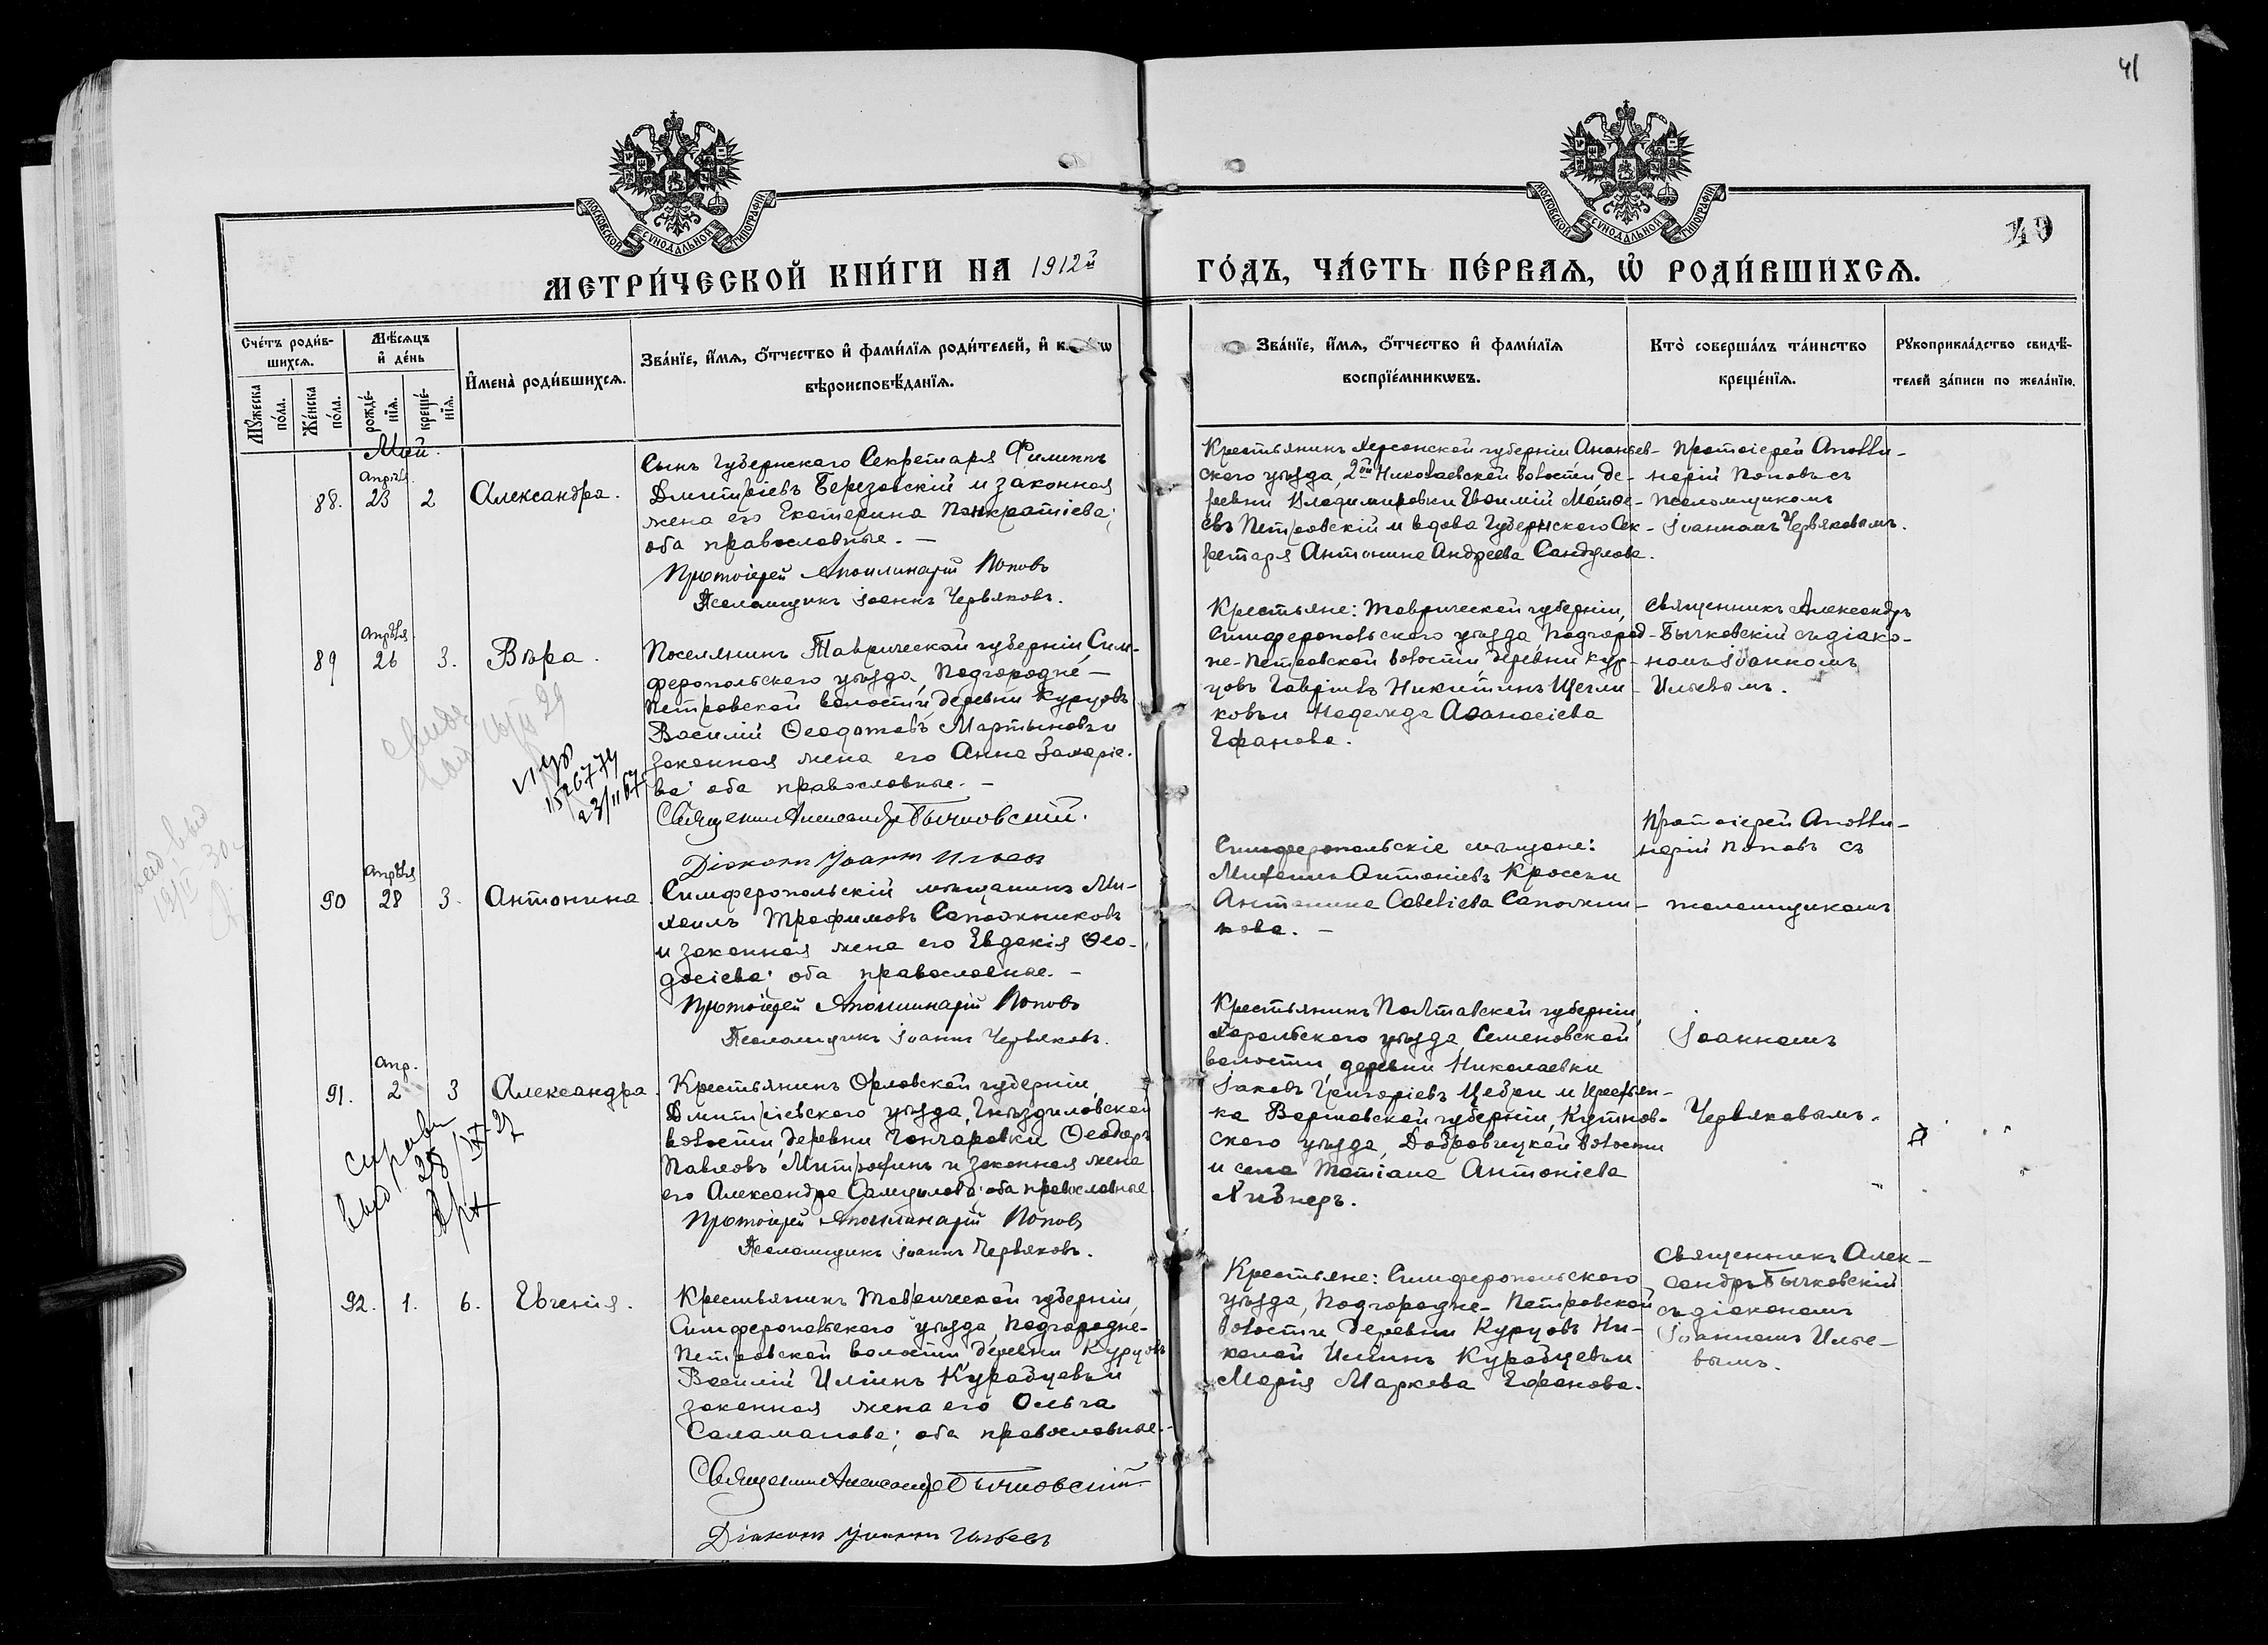 41
40
МОСКОВСКОЙ СУНОДАЛЬНОЙ ТИПОГРАФІИ
МОСКОВСКОЙ СУНОДАЛЬНОЙ ТИПОГРАФІИ
МЕТРИ́ЧЕСКОЙ КНИ́ГИ НА 1912й
ГО́ДЪ, ЧА́СТЬ ПЕ́РВАѦ, Ѡ҆ РОДИ́ВШИХСѦ.
Сче́тъ роди́в-
шихсѧ.
Мꙋ́жеска по́ла.
Же́нска по́ла.
Мѣ́сѧцъ
и҆ де́нь
рожде́-
нїѧ.
креще́-
нїѧ.
И҆мена̀ роди́вшихсѧ.
Зва́нїе, и҆́мѧ, ѻ҆́тчество и҆ фами́лїѧ роди́телей, и҆
вѣроисповѣ́данїѧ.
Зва́нїе, и҆́мѧ, ѻ҆́тчество и҆ фами́лїѧ
воспрїе́мникѡвъ.
Кто̀ соверша́лъ та́инство
креще́нїѧ.
Рꙋкоприкла́дство свидѣ́-
телей за́писи по жела́нїю.
Май.
88.
Апрѣля.
23
2
Александра.
Сынъ Губернскаго Секретаря Филиппъ
Дмитріевъ Березовскій и законная
жена его Екатерина Панкратіева;
оба православные. —
Протоіерей Аполлинарій Поповъ
Псаломщикъ Іоаннъ Червяковъ.
Крестьянинъ Херсонской губерніи Ананьев-
ского уѣзда, 2ой Николаевской волости де-
ревни Владимировки Евфимій Матѳе-
евъ Петровскій и вдова Губернского Сек-
ретаря Антонина Андреева Сандулова.
Протоіерей Аполли-
нарій Поповъ съ
псаломщикомъ
Іоанномъ Червяковымъ.
89
Апрѣля
26
3.
Вѣра.
Поселянинъ Таврической губерніи, Сим-
феропольского уѣзда, Подгородне-
Петровской волости, деревни Курцовъ
Василій Ѳеодотовъ Мартыновъ и
законная жена его Анна Захаріе-
ва; оба православные. —
Священникъ Александръ Бычковскій.
Діаконъ Іоаннъ Ильевъ
VI ЯР
1526774
23/II 67
Крестьяне: Таврической губерніи,
Симферопольского уѣзда Подгород-
не-Петровской волости деревни Кур-
цовъ Гавріилъ Никитинъ Щегли-
ковъ и Надежда Аѳанасіева
Гофанова.
Священникъ Александръ
Бычковскій съ діако-
номъ Іоанномъ
Ильевымъ.
90
Апрѣля
28
3.
Антонина.
Симферопольскій мѣщанинъ Ми-
хаилъ Трофимовъ Сапожниковъ
и законная жена его Евдокія Ѳео-
досіева; оба православные. —
Протоіерей Аполлинарій Поповъ
Псаломщикъ Іоаннъ Червяковъ.
Симферопольскіе мѣщане:
Антоніевъ
Антонина Савеліева Сапожни-
кова. —
Протоіерей Аполли-
нарій Поповъ съ
псаломщикомъ
91.
Апр.
2
3
Александра.
Крестьянинъ Орловской губерніи,
Дмитріевского уѣзда, Гнѣздиловской
волости, деревни Гончаровки Ѳеодоръ
Павловъ Митрофинъ и законная жена
его Александра Самуилова; оба православные
Протоіерей Аполлинарій Поповъ
Псаломщикъ Іоаннъ Червяковъ.
Крестьянинъ Полтавской губерніи,
Хорольского уѣзда, Семеновской
волости, деревни Николаевки
Іаковъ Григоріевъ Цебри и крестьян-
ка Варшавской губерніи, Кутнов-
ского уѣзда, Добровицкой волости
и села Татіана Антоніева
Хибнеръ.
Іоанномъ
Червяковымъ.
справ
выд 28/IX-37
92.
1.
6.
Евгенія.
Крестьянинъ Таврической губерніи,
Симферопольского уѣзда, Подгородне-
Петровской волости, деревни Курцовъ
Василій Ильинъ Курабцевъ и
законная жена его Ольга
Саламанова; оба православные. —
Священникъ Александръ Бычковскій
Діаконъ Іоаннъ Ильевъ
Крестьяне: Симферопольского
уѣзда, Подгородне-Петровской
волости, деревни Курцовъ Ни-
колай Ильинъ Курабцевъ и
Марія Маркова Гофанова.
Священникъ Алек-
сандръ Бычковскій
съ діакономъ
Іоанномъ Илье-
вымъ.